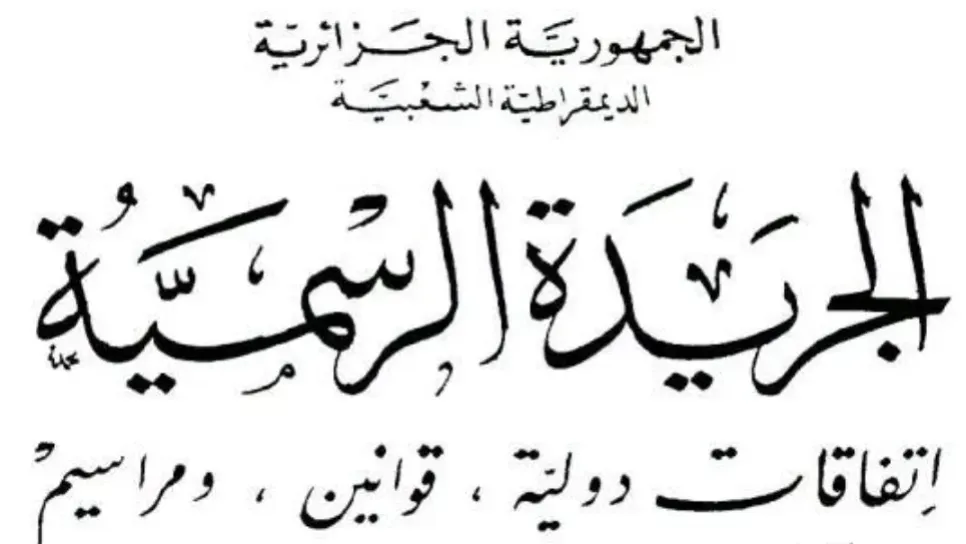 الجمهوريّة الجزائريّة
الديمقراطيّة الشعبيّة
الجريدة الرسميّة
اتفاقات دوليّة ، قوانين ، ومراسيم